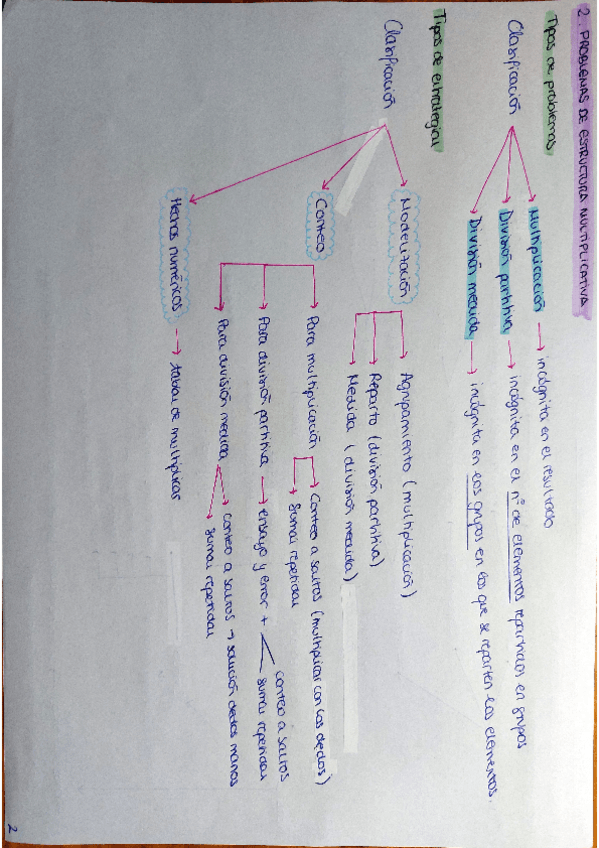 2. PROBLEMAS DE ESTRUCTURA MULTIPLICATIVA
Tipos de problemas
Clasificación
Multiplicación → incógnita en el resultado
División partitiva → incógnita en el nº de elementos repartidos en grupos
División medida → incógnita en los grupos en los que se reparten los elementos.
Tipos de estrategias
Clasificación
Modelización
Agrupamiento (multiplicación)
Reparto (división partitiva)
Medida (división medida)
Conteo
Para multiplicación
Conteo a saltos (multiplicar con los dedos)
Sumas repetidas
Para división partitiva → ensayo y error +
conteo a saltos
sumas repetidas
Para división medida
conteo a saltos → solución dedos manos
sumas repetidas
Hechos numéricos → tablas de multiplicar
2